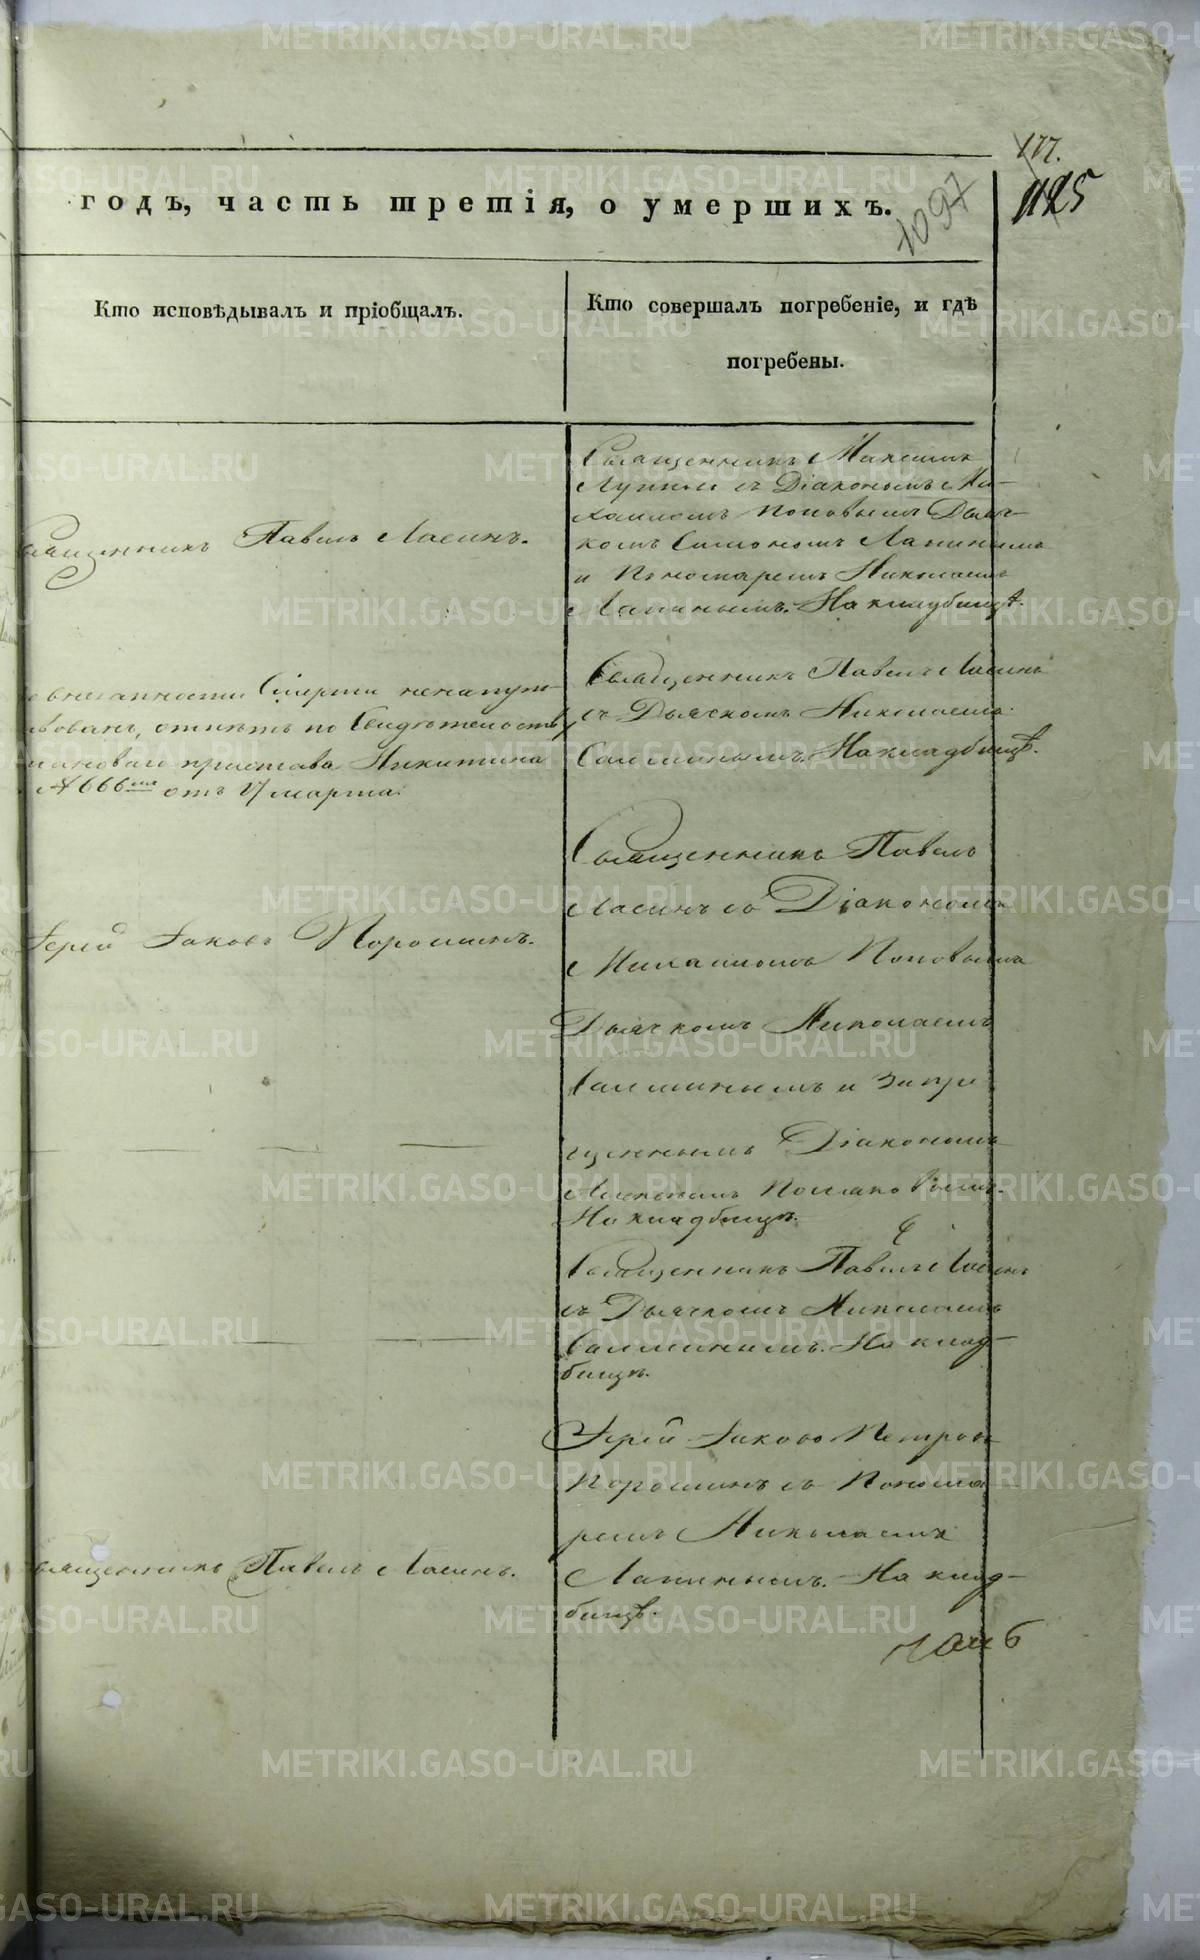 177.
1125
1097
годъ, часть третія, о умершихъ.
Кто исповѣдывалъ и пріобщалъ.
Кто совершалъ погребеніе, и гдѣ
погребены.
Священникъ Павелъ Ласинъ.
Священникъ Максимъ
съ Діакономъ Ми-
хаиломъ Поповымъ Дьяч-
комъ Симономъ Лапинымъ
и Пономаремъ Николаемъ
Лапинымъ. На кладбищѣ.
внезапности Смерти ненапут-
вованъ, отпѣтъ по Свидѣтельству
пристава Никитина
№ 666 отъ 17 марта.
Священникъ Павелъ Ласинъ
съ Дьячкомъ Николаемъ
Салминымъ. На кладбищѣ.
Іерей Іаковъ Порошинъ.
Священникъ Павелъ
Ласинъ съ Діакономъ
Михаиломъ Поповымъ
Дьячкомъ Николаемъ
Салминымъ и Запре
щеннымъ Діакономъ
На кладбищѣ.
Священникъ Павелъ Ласинъ
съ Дьячкомъ Николаемъ
Салминымъ. На клад-
бищѣ.
Священникъ Павелъ Ласинъ.
Іерей Іаковъ Петровъ
Порошинъ съ Понома
ремъ Николаемъ
Лапинымъ. На клад-
бищѣ.
METRIKI.GASO-URAL.RU